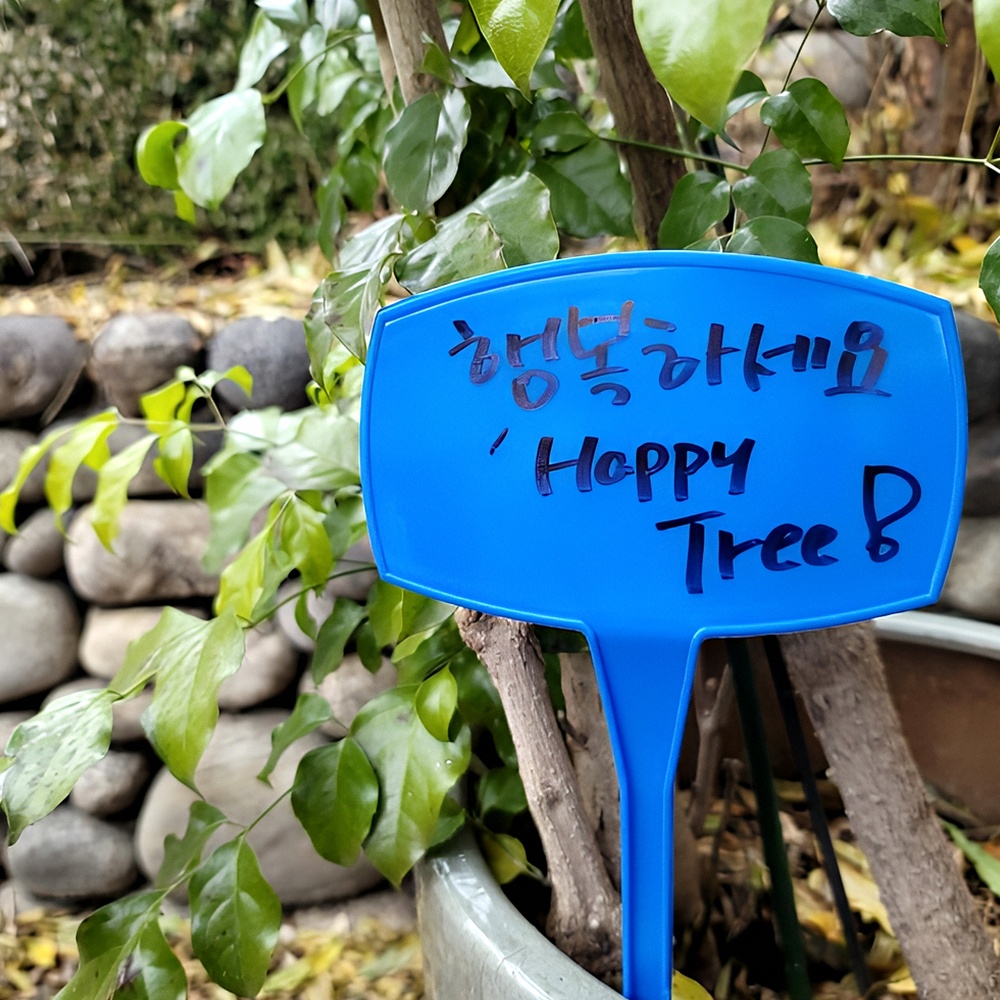 행복하세요
'Happy
Tree!